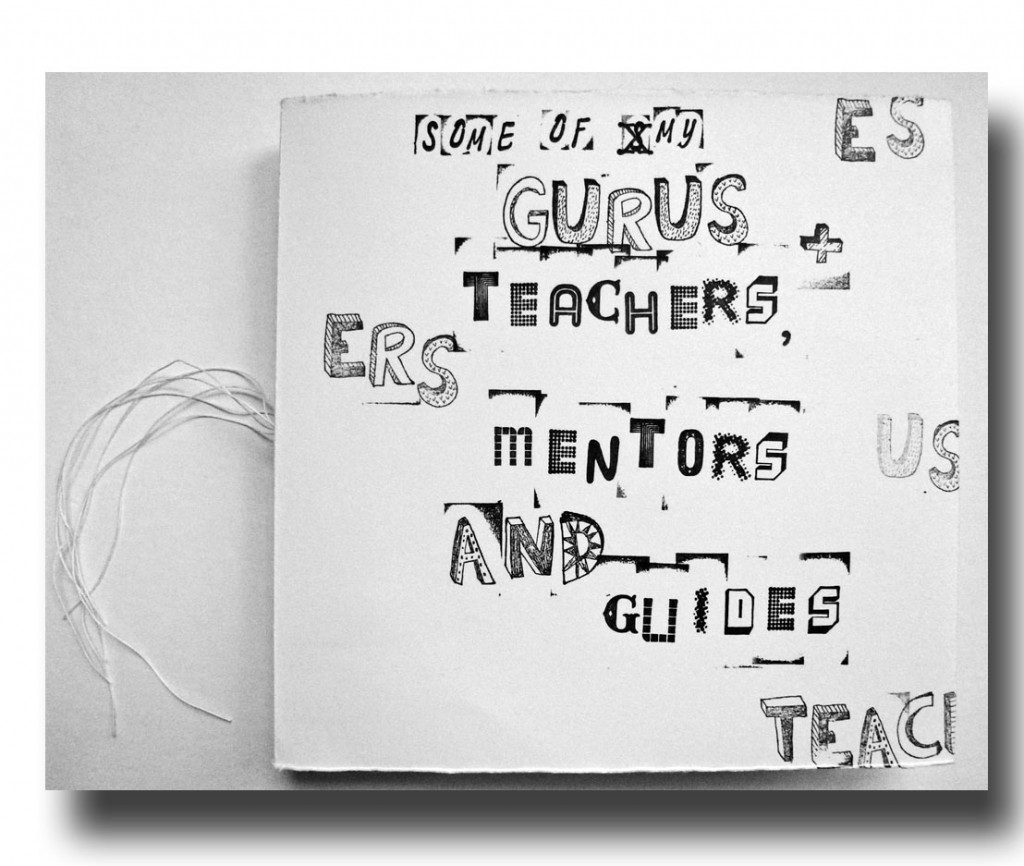 ES
SOME OF MY
GURUS +
TEACHERS,
ERS
MENTORS
US
AND
GUIDES
TEAC